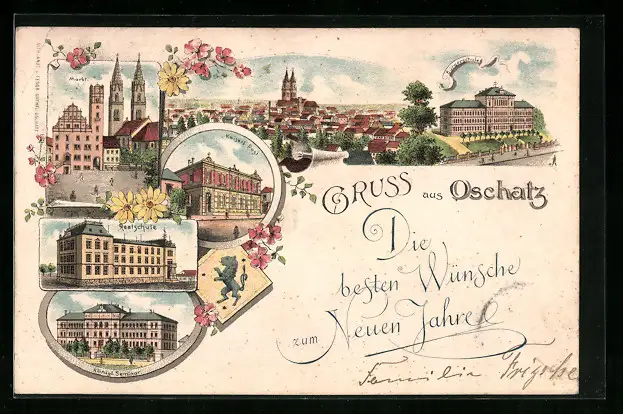 Markt
Kaiserl. Post
Realschule
Königl. Seminar
GRUSS aus Oschatz
Die
besten Wünsche
zum Neuen Jahre
Familie